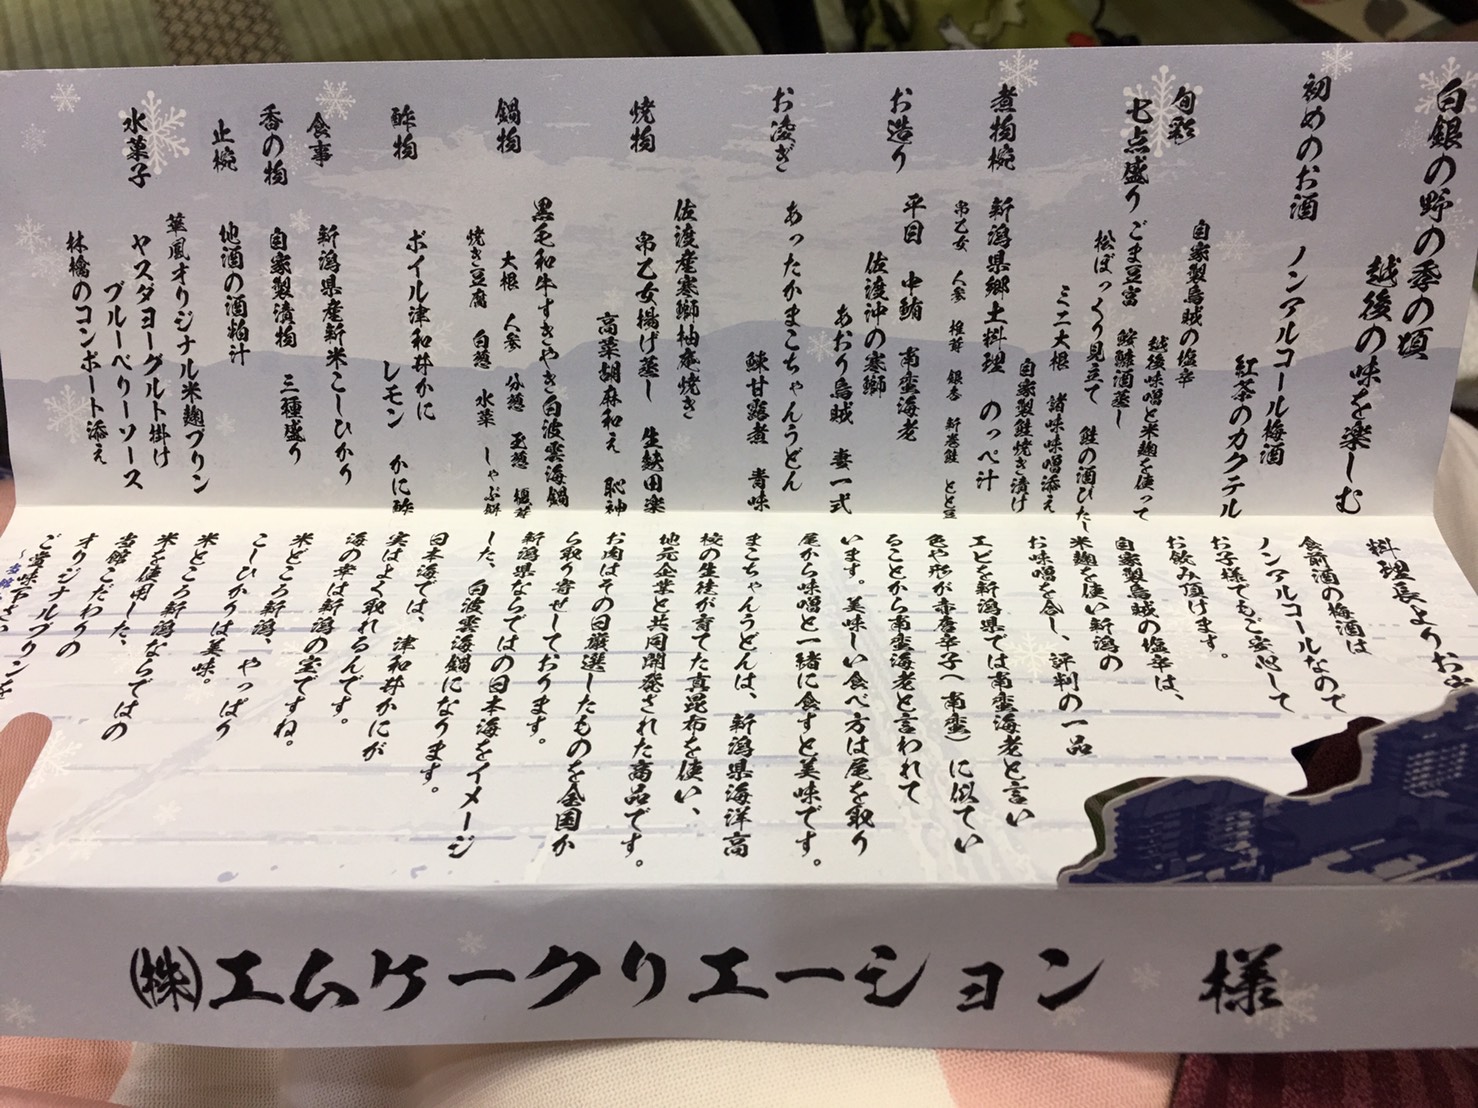 白銀の野の季の頃
越後の味を楽しむ
初めのお酒 ノンアルコール梅酒
紅茶のカクテル
旬彩
七点盛り
自家製烏賊の塩辛
越後味噌と米麹を使って
ごま豆富 鮟鱇酒蒸し
松ぼっくり見立て 鮭の酒びたし
ミニ大根 諸味味噌添え
自家製鮭焼き漬け
煮物椀 新潟県郷土料理 のっぺ汁
串乙女 人参 椎茸 銀杏 新巻鮭 とと豆
お造り 平目 中鮪 南蛮海老
佐渡沖の寒鰤
あおり烏賊 妻一式
お凌ぎ あったかまこちゃんうどん
鰊甘露煮 青味
焼物 佐渡産寒鰤柚庵焼き
串乙女揚げ蒸し 生麩田楽
高菜胡麻和え 恥神
鍋物 黒毛和牛すきやき白波雲海鍋
大根 人参 分葱 玉葱 榎茸
焼き豆腐 白葱 水菜 しゃぶ餅
酢物 ボイル津和井かに
レモン かに酢
食事 新潟県産新米こしひかり
香の物 自家製漬物 三種盛り
止椀 地酒の酒粕汁
水菓子 華風オリジナル米麹プリン
ヤスダヨーグルト掛け
ブルーベリーソース
林檎のコンポート添え
料理長よりお
食前酒の梅酒は
ノンアルコールなので
お子様でもご安心して
お飲み頂けます。
自家製烏賊の塩辛は、
米麹を使い新潟の
お味噌を合し、評判の一品
エビを新潟県では南蛮海老と言い
色や形が赤唐辛子(南蛮)に似てい
ることから南蛮海老と言われて
います。美味しい食べ方は尾を取り
尾から味噌と一緒に食すと美味です。
まこちゃんうどんは、新潟県海洋高
校の生徒が育てた真昆布を使い、
地元企業と共同開発された商品です。
お肉はその日厳選したものを全国か
ら取り寄せしております。
新潟県ならではの日本海をイメージ
した、白波雲海鍋になります。
日本海では、津和井かにが
実はよく取れるんです。
海の幸は新潟の宝ですね。
米どころ新潟、やっぱり
こしひかりは美味。
米どころ新潟ならではの
米を使用した、
当館こだわりの
オリジナルプリンを
ご賞味下さい
㈱エムケークリエーション 様